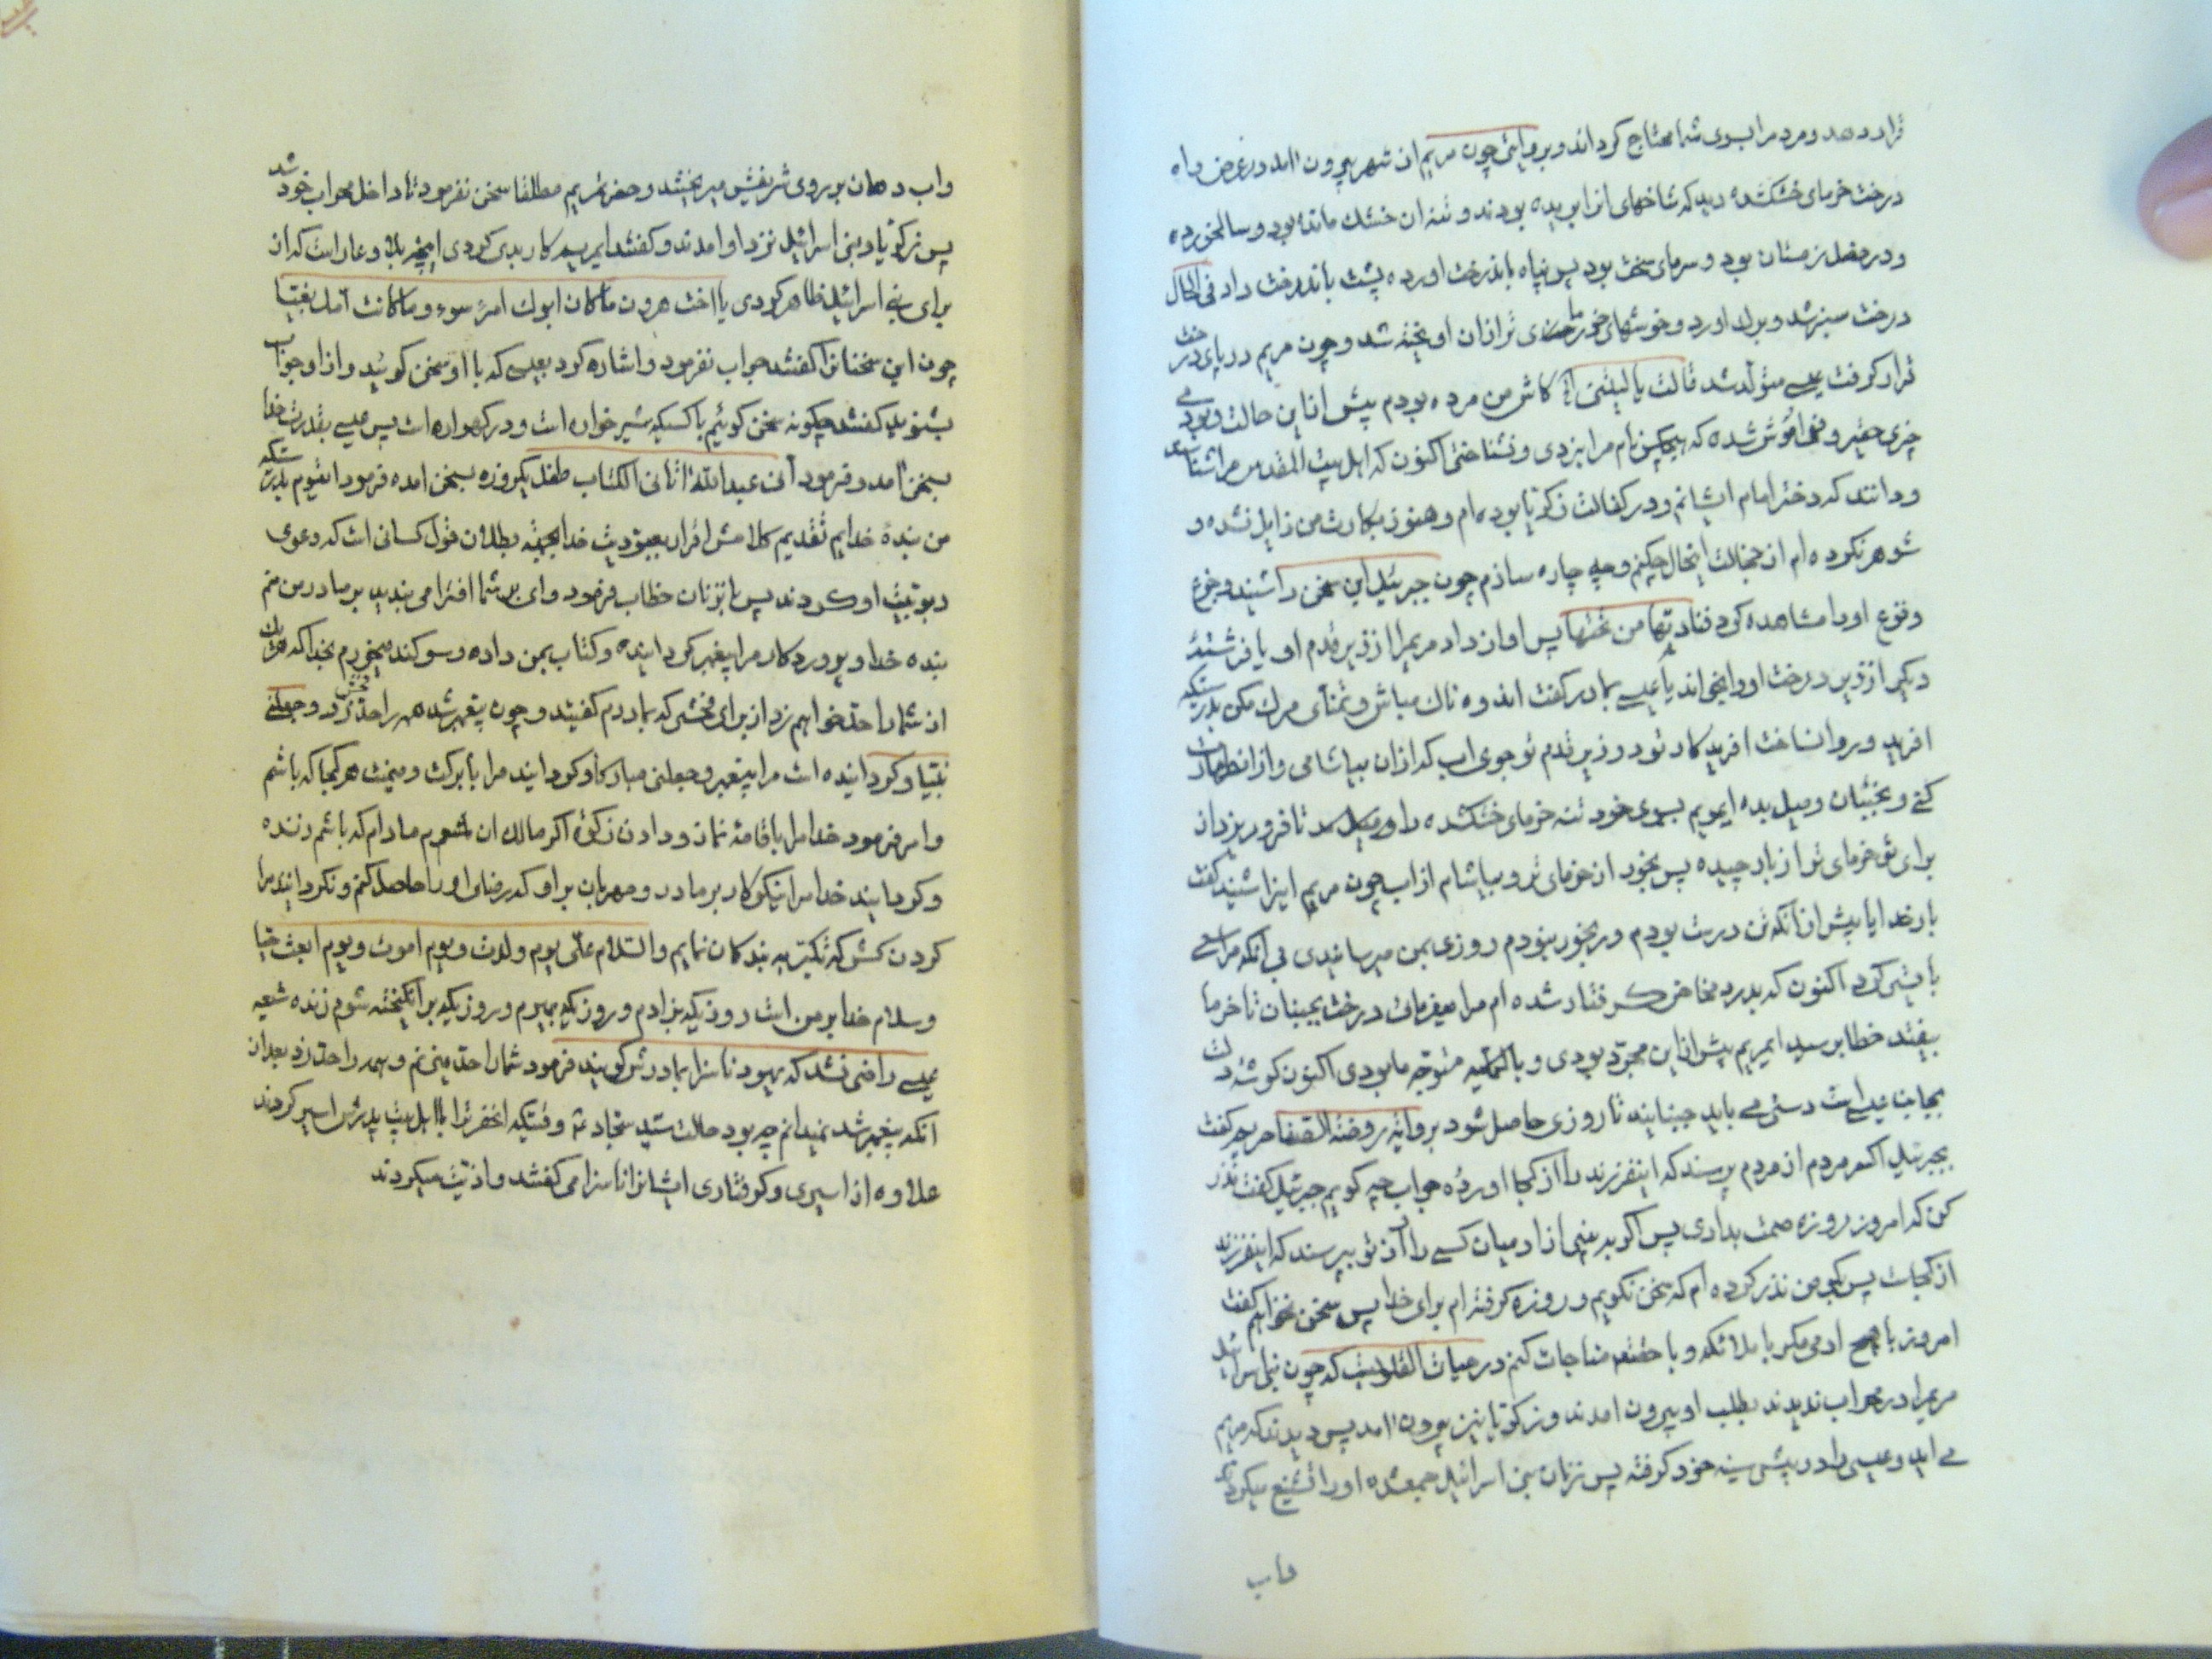 قرار دهد و مردم را بسوی شما محتاج کرداند و بروایتی چون مریم از شهر بیرون آمد در عرض راه
درخت خرمای خشکشده دید که شاخهای انرا بریده بودند و تنه ان خشک مانده بود و سالخورده
و در فصل زمستان بود و سرمای سخت بود پس پناه باندرخت اورده پشت باندرخت داد فی الحال
درخت سبز شد و برک اورد و خوشهای خرمای تر ازان اویخته شد و چون مریم در پای درخت
قرار کرفت عیسی متولد شد قالت یا لیتنی کاش من مرده بودم پیش از این حالت و بودمی
چیزی حقیر و فراموش شده که هیچکس نام مرا نبردی و نشناختی اکنون که اهل بیت المقدس مرا شناسای
و دانند که دختر امام ایشانم و در کفالت زکریا بوده ام و هنوز بکارت من زایل نشده و
شوهر نکرده ام از خجالت اینحال چکنم و چه چاره سازم چون جبرئیل این سخن را شنید و جزع
و فزع اورا مشاهده کرد فنادیها من تحتها پس اواز داد مریم را از زیر قدم او یا فرشتهٔ
دیکر از زیر درخت اورا خواند یا عیسی بمادر کفت اندوه ناک مباش و تمنای مرک مکن بدرستیکه
افرید و روان ساخت افریدکار تو در زیر قدم تو جوی اب که ازان بیاشامی و ازان طهارت
کنی و بجنبان و میل بده ایمریم بسوی خود تنه خرمای خشکشده را تا فرو ریزد از
برای تو خرمای تر از بار چیده پس بخور از خرمای تر و بیاشام از اب چون مریم اینرا شنید کفت
بار خدایا پیش از آنکه تن درست بودم و رنجور نبودم روزی بمن میرسانیدی بی آنکه مرا سعی
بایستی کرد اکنون که بدرد مخاض کرفتار شده ام مرا میفرمائی درخت بجنبان تا خرما
بیفتد خطاب رسید ایمریم پیش ازاین مجرد بودی و بالکلیه متوجه ما بودی اکنون کوشه دلت
بجانب عیسی است دستی می باید جنبانید تا روزی حاصل شود بروایة روضة الصفا مریم کفت
بجبرئیل اکر مردم از مردم پرسند که اینفرزند را از کجا اوردهٔ جواب چه کویم جبرئیل کفت نذر
کن که امروز روزه صمت بداری پس اکر به بینی از ادمیان کسی را از تو بپرسند که اینفرزند
از کجاست پس بکو من نذر کرده ام که سخن نکویم و روزه کرفته ام برای خدا پس سخن نخواهم کفت
امروز با هیچ ادمی مکر با ملائکه و با حقتعم مناجات کنم در حیات القلوبست که چون بنی اسرائیل
مریم را در محراب ندیدند بطلب او بیرون امدند و زکریا نیز بیرون امد پس دیدند که مریم
می اید و عیسی را در پیش سینه خود کرفته پس زنان بنی اسرائیل جمعشده اورا تشنیع میکردند
واب
واب دهان بر روی شریفش میریختند و حضرتمریم مطلقا سخن نفرمود تا داخل محراب خود شد
پس زکریا و بنی اسرائیل نزد او امدند و کفتند ایمریم کار بدی کردی اینچه بلا و عار است که از
برای بنی اسرائیل ظاهر کردی یا اخت هرون ماکان ابوک امرء سوء و ما کانت امک بغیا
چون این سخنانرا کفتند جواب نفرمود و اشاره کرد بعیسی که با او سخن کوئید و از او جواب
بشنوید کفتند چکونه سخن کوئیم با کسیکه شیرخواره است و در کهواره است پس عیسی بقدرت خدا
بسخن امد و فرمود انی عبدالله اتانی الکتاب طفل یکروزه بسخن امده فرمود ایقوم بدرستیکه
من بندهٔ خدایم تقدیم کلامش اقرار بعبودیت خدا بجهته بطلان قول کسانی است که دعوی
ربوبیت او کردند پس با زنان خطاب فرمود وای بر شما افترا می بندید بر مادر من منم
بنده خدا و پروردکار مرا پیغمبر کردانیده و کتاب بمن داده و سوکند میخورم بخدا که هریک
از شما را حد خواهم زد از برای فحشی که بمادرم کفتید و چون پیغمبر شد همه را حد زد وجعلنی
نبیّا و کردانیده است مرا پیغمبر وجعلنی مبارکاً و کردانید مرا با برکت و میمنت هر کجا که باشم
و امر فرمود خدا مرا باقامهٔ نماز و دادن زکوة اکر مالک ان شوم مادام که باشم زنده
و کردانید خدا مرا نیکوکار بر مادر و مهربان بر او که رضای اورا حاصل کنم و نکردانید مرا
کردن کش که تکبر به بندکان نمایم والسلام علیّ یوم ولدت ویوم اموت ویوم ابعث حیا
و سلام خدا بر من است روزیکه بزادم و روزیکه بمیرم و روزیکه برانکیخته شوم زنده شیعه
عیسی راضی نشد که یهود ناسزا بمادرش کویند فرمود شما را حد میزنم و همه را حد زد بعد از
انکه پیغمبر شد نمیدانم چه بود حالت سید سجاد ع وقتیکه انحضرترا با اهل بیت پدرش اسیر کردند
علاوه از اسیری و کرفتاری ایشانرا ناسزا می کفتند و اذیت میکردند